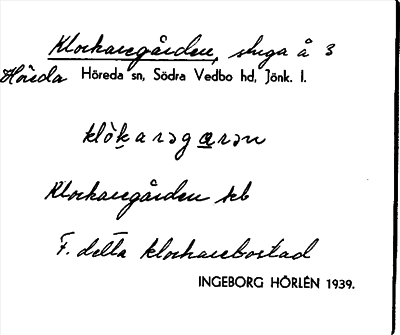 Klockaregården, stuga å 3
Höreda Höreda sn, Södra Vedbo hd, Jönk. l.
klòkarəgɑrən
Klockaregården
F. detta klockarebostad
INGEBORG HÖRLÉN 1939.